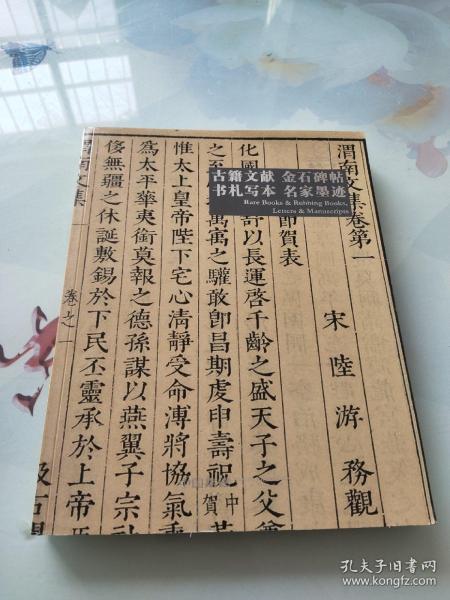 古籍文献 金石碑帖
书札写本 名家墨迹
Rare Books & Rubbing Books,
Letters & Manuscripts
渭南文集卷第一
宋 陸 游 務觀
即賀表
化國
奇以長運啓千齡之盛天子之父
之至
寓之驩敢卽昌期虔申壽祝
中
賀
惟太上皇帝陛下宅心清靜受命溥將協氣
為太平華夷銜莫報之德孫謀以燕翼子宗社
侈無疆之休誕敷錫於下民丕靈承於上帝
渭南文集
卷之一
汲古閣
孔夫子旧书网
www.kongfz.com